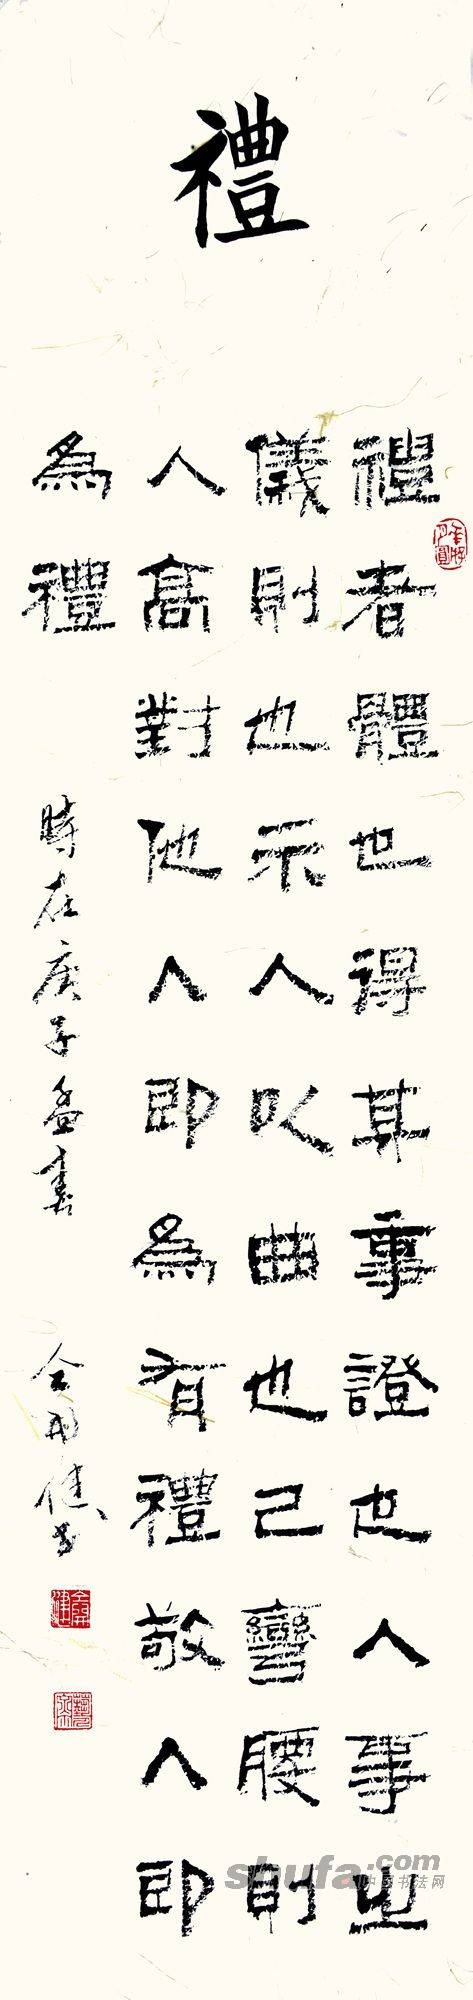 禮
禮者體也得其事證也人事之
儀則也示人以曲也己彎腰則
人高對他人即為有禮敬人即
為禮
時在庚子孟春
shufa.com
中国书法网